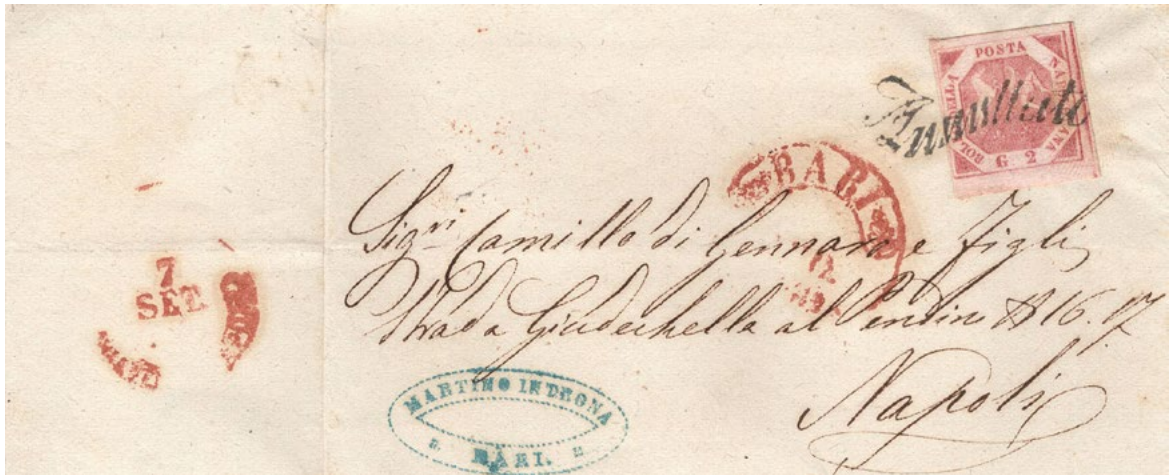 POSTA NAPOLETANA
BOLLO DELLA
G 2
Annullato
BARI
Sig.ri Camillo di Gennaro e figli
Strada Giudechella al Pendino N 16. 17
Napoli
7
SET.
MARTINO INDRONA
BARI.